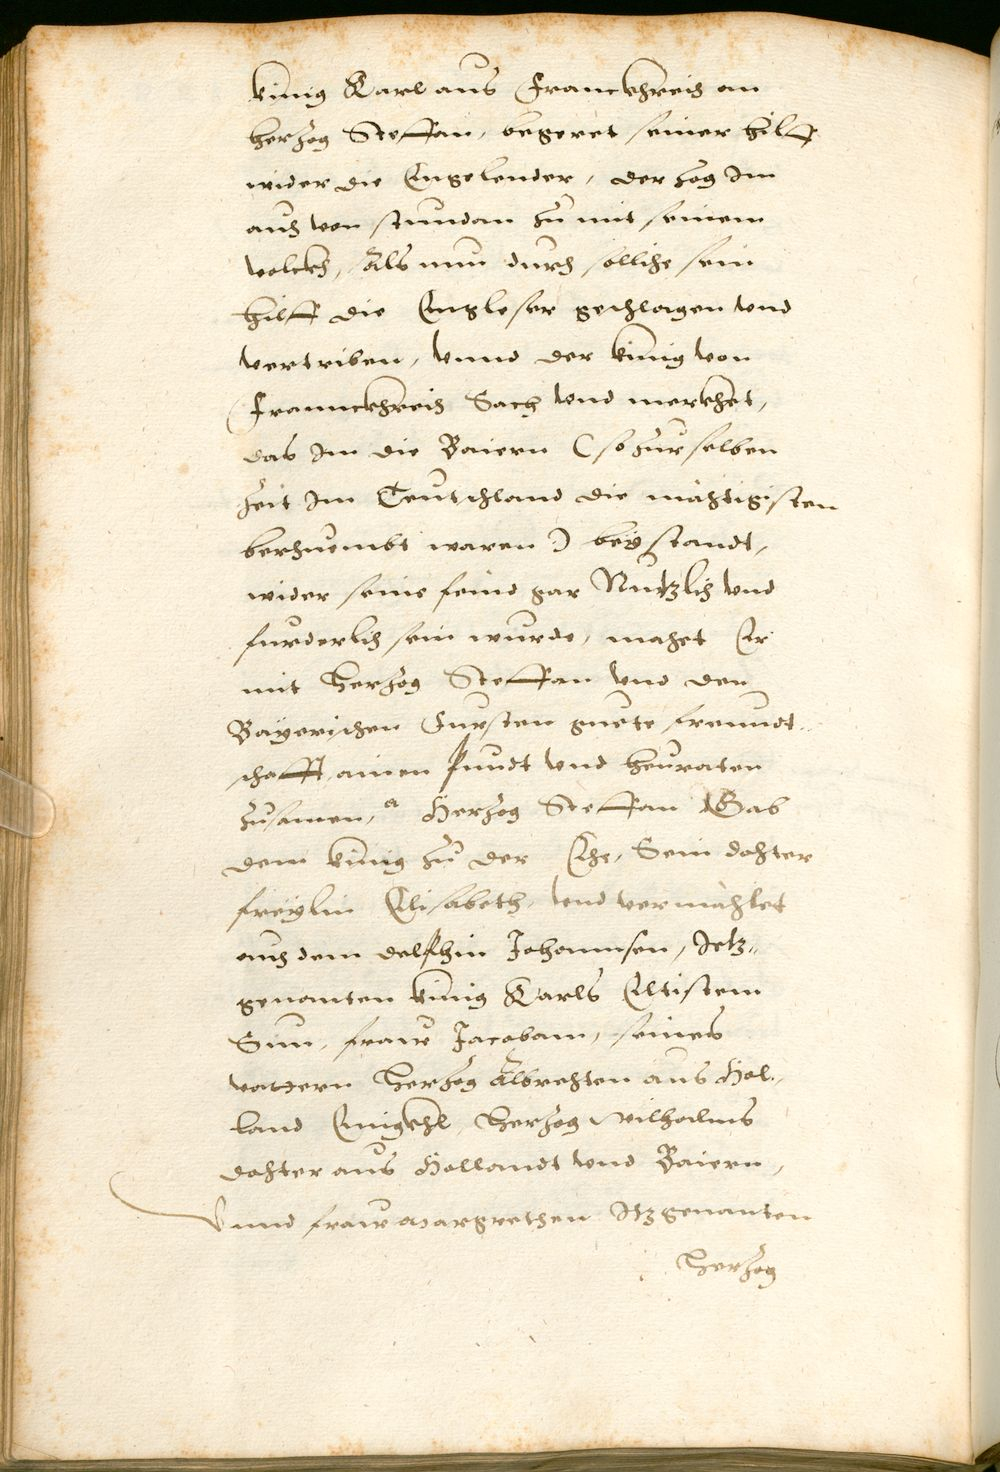 künig Karl aus Franckhreich an
herzog Steffan, begeret seiner hilff
wider die Engelender, der zog Im
auch von stundan zu mit seinem
volckh, Als nun durch solliche sein
hilff die Engleser geschlagen vnd
vertriben, vnnd der künig von
Frannckhreich Sach vnd merckhet,
das Im die Baiern (so zur selben
zeit Im Teutschland die mächtigisten
berhuembt waren) beystandt,
wider seine feind gar Nutzlich vnd
furderlich sein wurde, machet Er
mit Herzog Steffan vnd den
Bayerischen Fursten guete freundt-
schafft ainen pundt vnd heuraten
zusamen, Herzog Steffan Gab
dem künig zu der Ehe, Sein dochter
freylin Elisabeth, vnd vermächlet
auch dem delphin Johannsen, Jetz-
genanten künig Karls Eltistem
Sun, fraw Jacobam, seines
vattern Herzog Albrechten aus Hol-
land Enigkhl, Herzog Wilhalms
dochter aus Hollandt vnd Baiern,
Vnnd fraw Margrethen Itzgenanten
Herzog